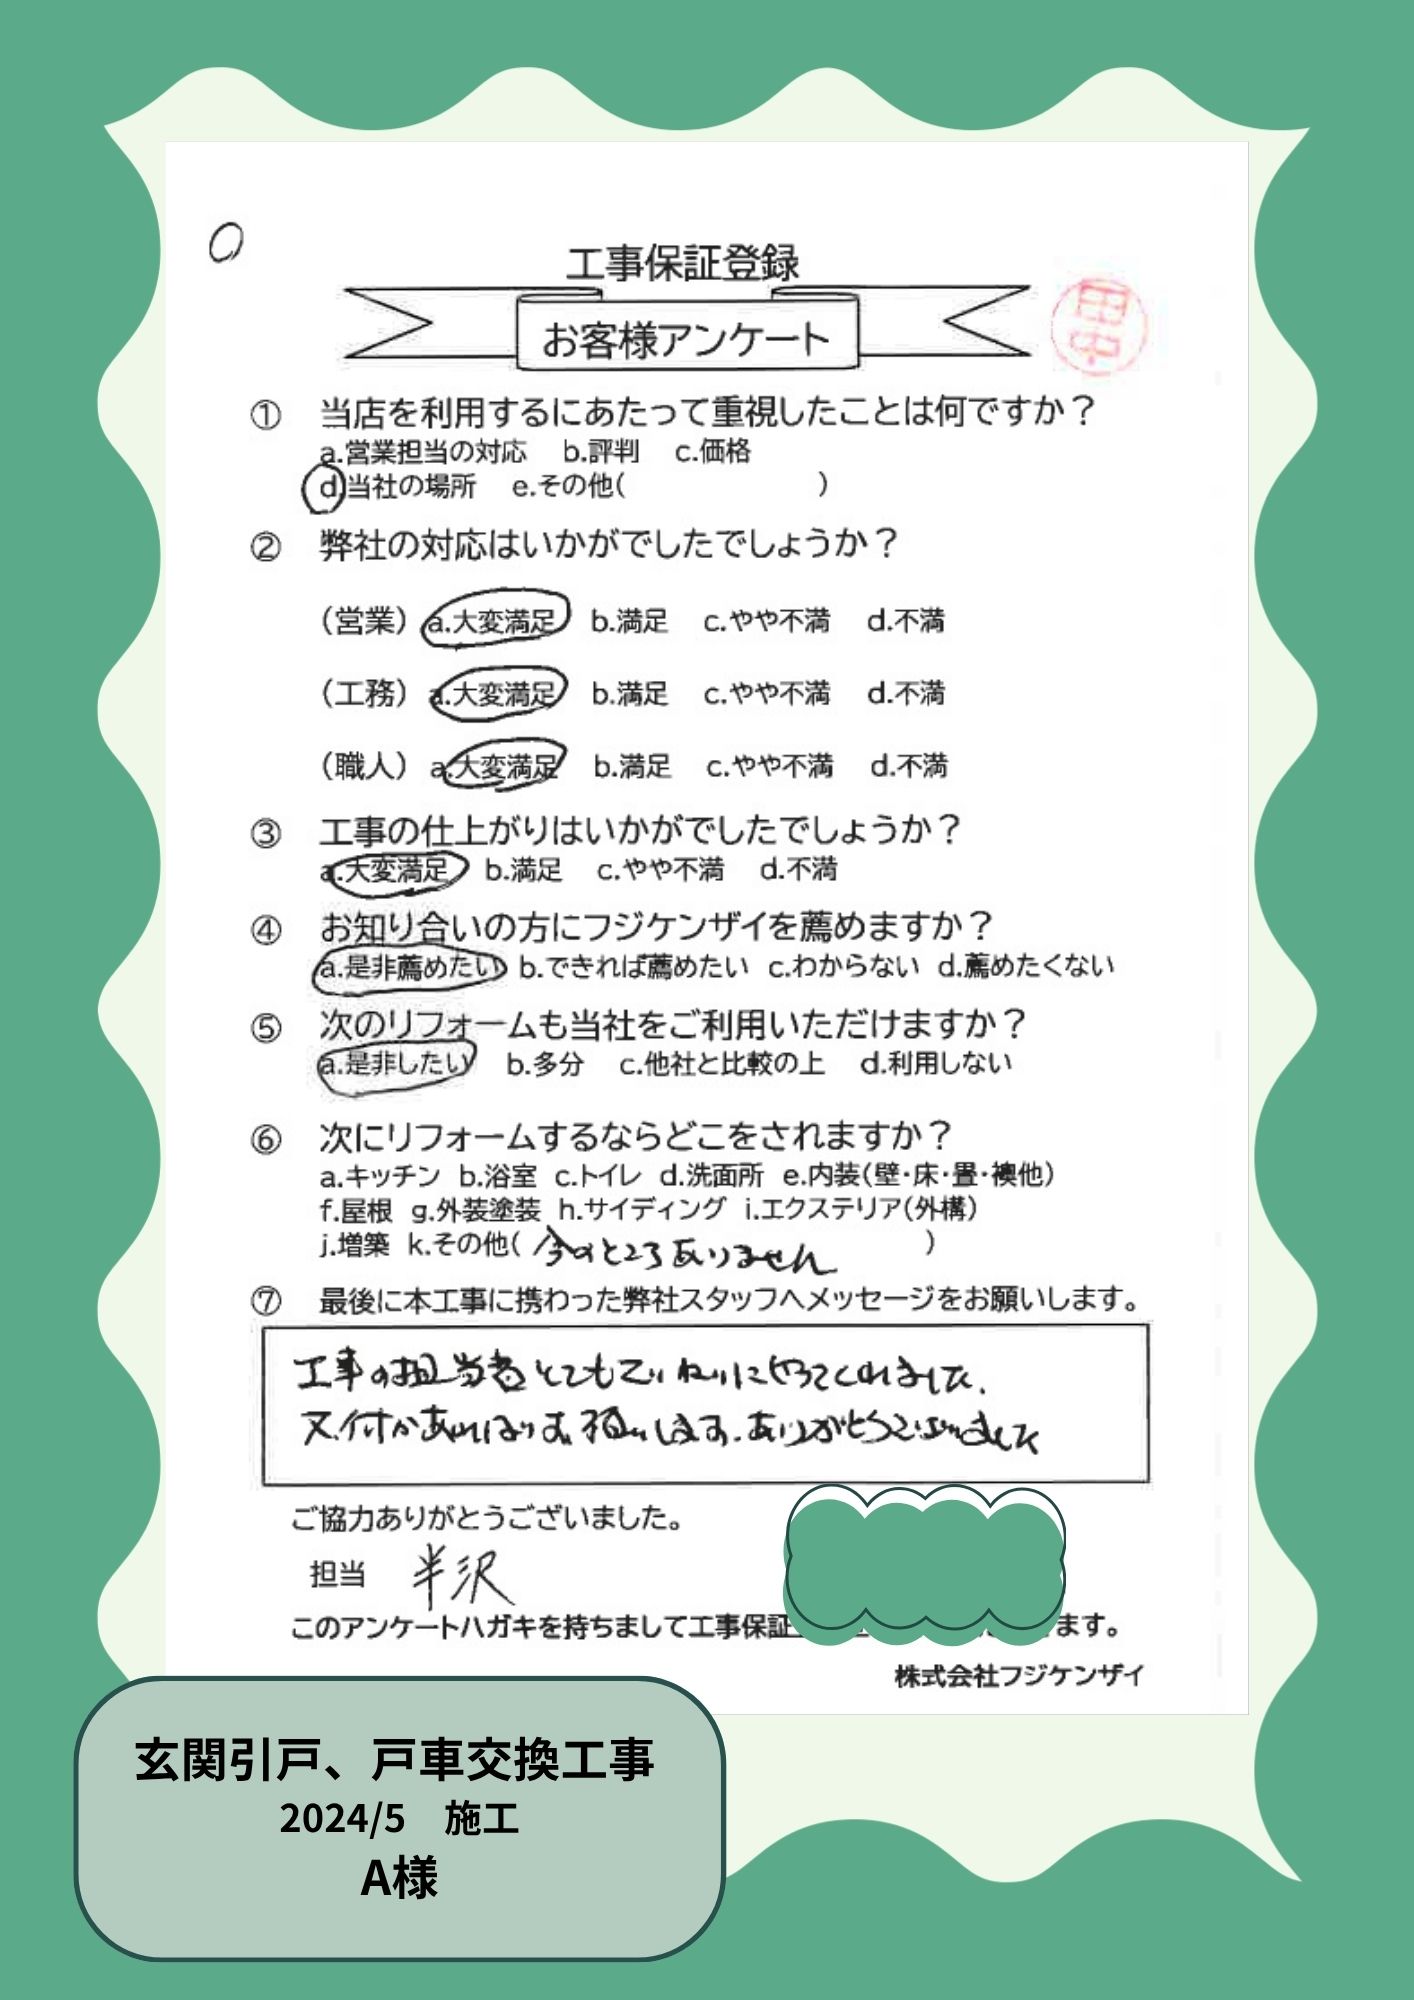 工事保証登録
お客様アンケート
田中
① 当店を利用するにあたって重視したことは何ですか？
a.営業担当の対応 b.評判 c.価格
d.当社の場所 e.その他( )
② 弊社の対応はいかがでしたでしょうか？
（営業） a.大変満足 b.満足 c.やや不満 d.不満
（工務） a.大変満足 b.満足 c.やや不満 d.不満
（職人） a.大変満足 b.満足 c.やや不満 d.不満
③ 工事の仕上がりはいかがでしたでしょうか？
a.大変満足 b.満足 c.やや不満 d.不満
④ お知り合いの方にフジケンザイを薦めますか？
a.是非薦めたい b.できれば薦めたい c.わからない d.薦めたくない
⑤ 次のリフォームも当社をご利用いただけますか？
a.是非したい b.多分 c.他社と比較の上 d.利用しない
⑥ 次にリフォームするならどこをされますか？
a.キッチン b.浴室 c.トイレ d.洗面所 e.内装(壁・床・畳・襖他)
f.屋根 g.外装塗装 h.サイディング i.エクステリア(外構)
j.増築 k.その他( 今のところありません )
⑦ 最後に本工事に携わった弊社スタッフへメッセージをお願いします。
工事の担当者とてもていねいにやってくれました.
又、何かあればお願いします. ありがとうございました
ご協力ありがとうございました。
担当 半沢
このアンケートハガキを持ちまして工事保証 ます。
株式会社フジケンザイ
玄関引戸、戸車交換工事
2024/5 施工
A様